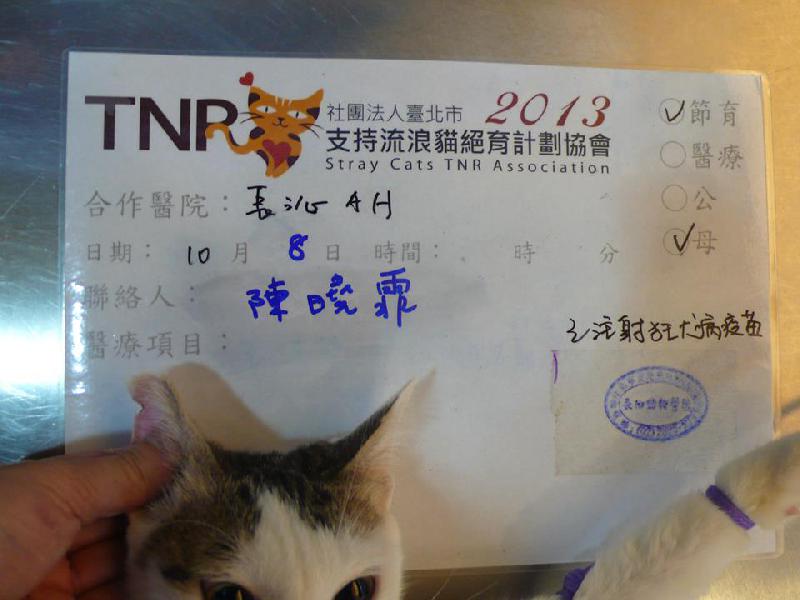 TNR
社團法人臺北市 2013
支持流浪貓絕育計劃協會
Stray Cats TNR Association
節育
醫療
公
母
合作醫院：長沁AH
日期： 10 月 8 日 時間： 時 分
聯絡人： 陳曉霏
醫療項目：
注射狂犬病疫苗